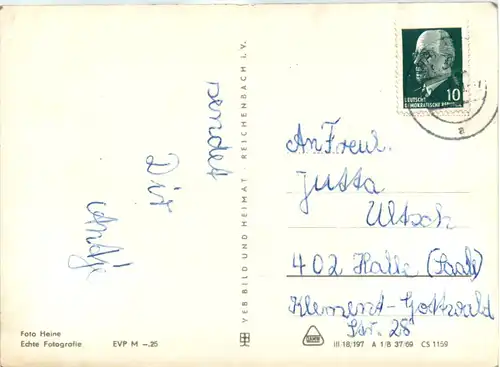 sendet
Dir
Antje
VEB BILD UND HEIMAT, REICHENBACH I. V.
10
DEUTSCHE
DEMOKRATISCHE REPUBLIK
a
An Freul.
Jutta
Ultsch
402 Halle (Saale)
Klement-Gottwald
Str. 28
Foto Heine
Echte Fotografie EVP M –.25
III/18/197 A 1/B 37/69 CS 1159